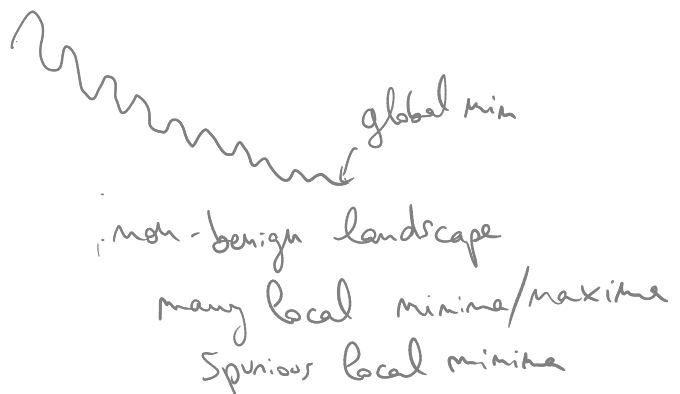 global min
non-benign landscape
many local minima/maxima
Spurious local minima